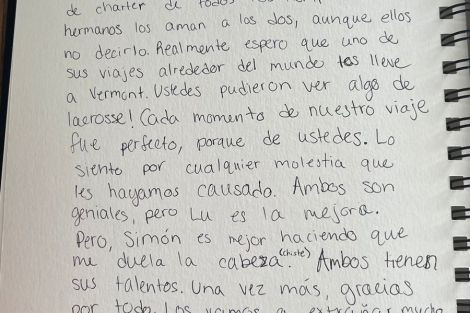 de charter de todos
hermanos los aman a los dos, aunque ellos
no decirlo. Realmente espero que uno de
sus viajes alrededor del mundo los lleve
a Vermont. Ustedes pudieron ver algo de
lacrosse! Cada momento de nuestro viaje
fue perfecto, porque de ustedes. Lo
siento por cualquier molestia que
les hayamos causado. Ambos son
geniales, pero Lu es la mejora.
Pero, Simón es mejor haciendo que
me duela la cabeza (chiste). Ambos tienen
sus talentos. Una vez más, gracias
por todo. Los vamos a extrañar mucho